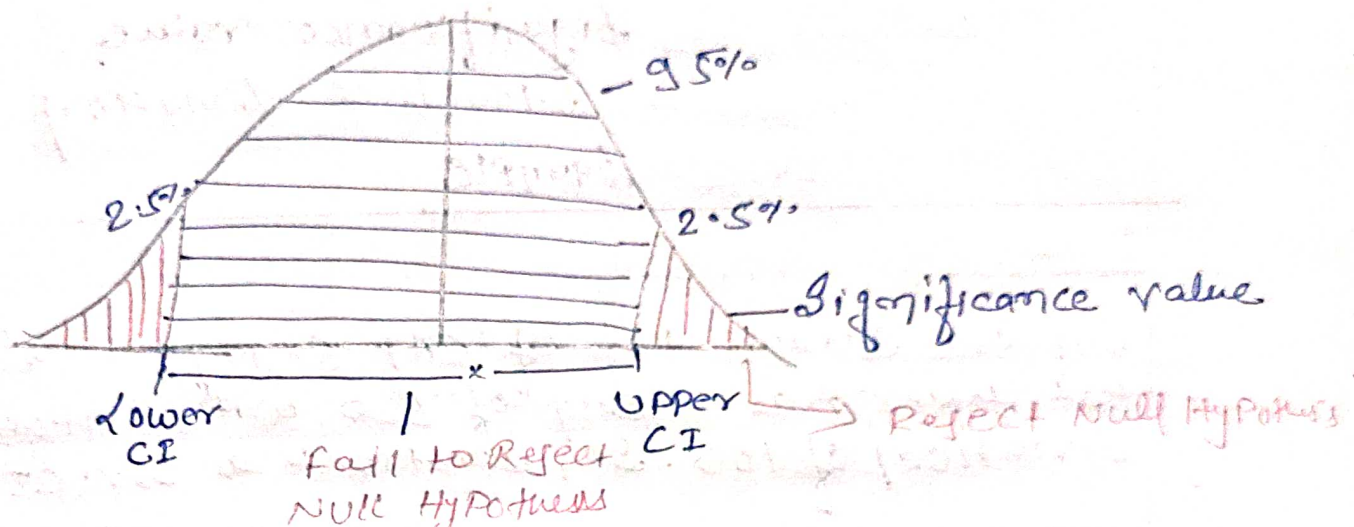 95%
2.5%
2.5%
Significance value
x
Lower
CI
Upper
CI
Reject Null Hypothesis
Fail to Reject
Null Hypothesis